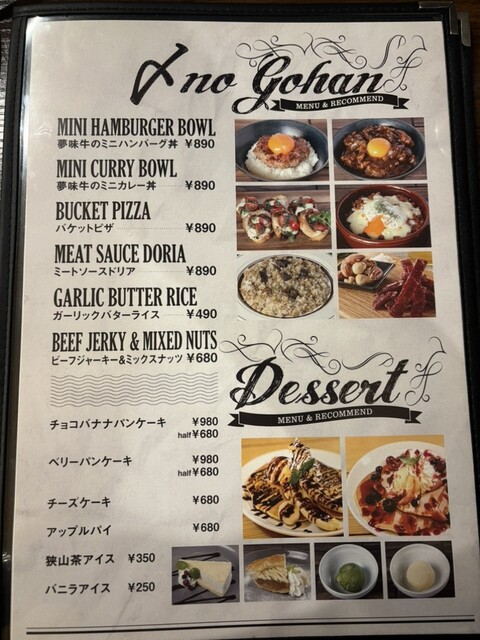 〆no Gohan
MENU & RECOMMEND
MINI HAMBURGER BOWL
夢味牛のミニハンバーグ丼 ¥890
MINI CURRY BOWL
夢味牛のミニカレー丼 ¥890
BUCKET PIZZA
バケットピザ ¥890
MEAT SAUCE DORIA
ミートソースドリア ¥890
GARLIC BUTTER RICE
ガーリックバターライス ¥490
BEEF JERKY & MIXED NUTS
ビーフジャーキー&ミックスナッツ ¥680
Dessert
MENU & RECOMMEND
チョコバナナパンケーキ ¥980
half ¥680
ベリーパンケーキ ¥980
half ¥680
チーズケーキ ¥680
アップルパイ ¥680
狭山茶アイス ¥350
バニラアイス ¥250